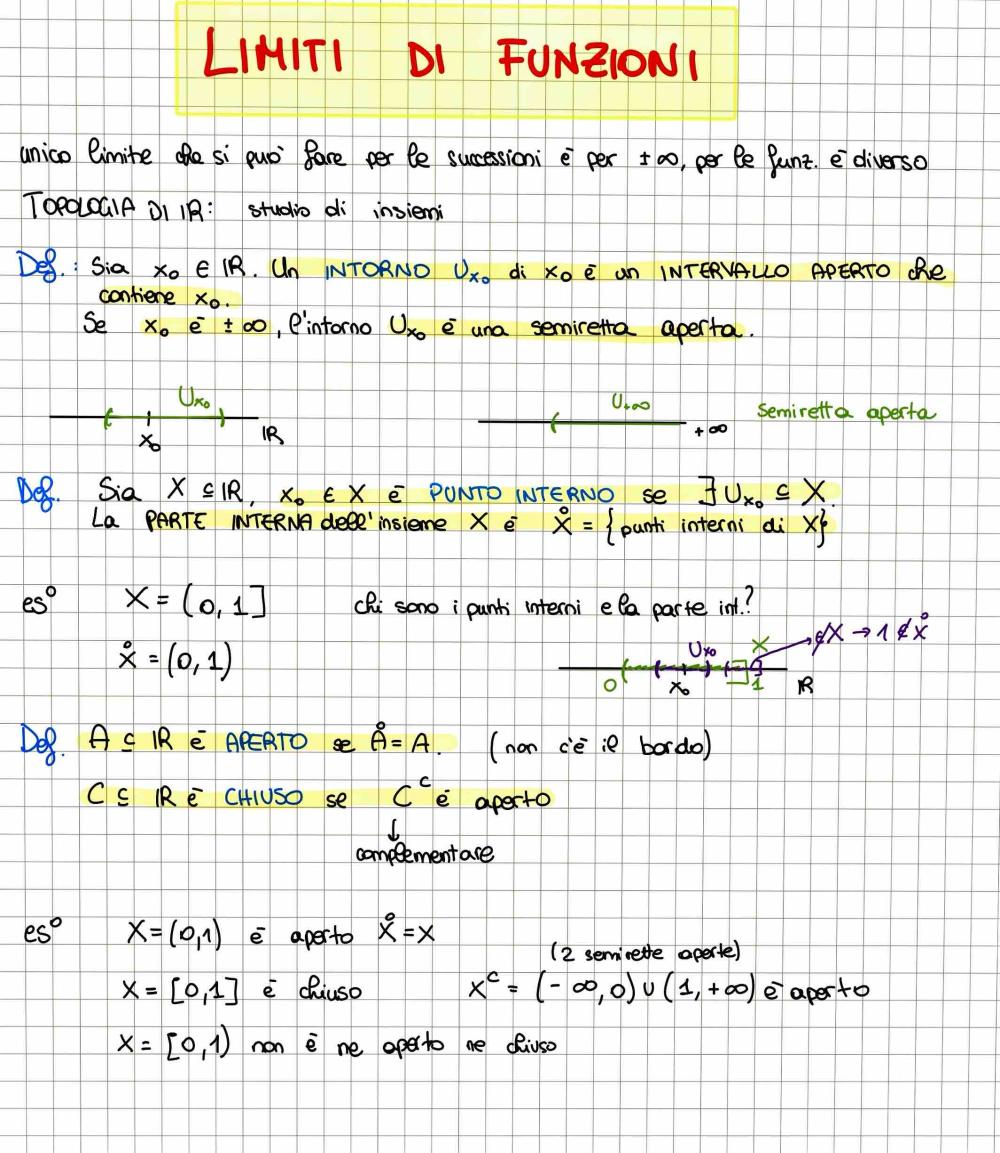 LIMITI DI FUNZIONI
unico limite che si può fare per le successioni è per ±∞, per le funz. è diverso
TOPOLOGIA DI IR: studio di insiemi
Def.: Sia x₀ ∈ IR. Un INTORNO Uₓ₀ di x₀ è un INTERVALLO APERTO che
contiene x₀.
Se x₀ è ±∞, l'intorno Uₓ₀ è una semiretta aperta.
Uₓ₀
x₀ IR
U₊∞
+∞
semiretta aperta
Def. Sia X ⊆ IR, x₀ ∈ X è PUNTO INTERNO se ∃ Uₓ₀ ⊆ X.
La PARTE INTERNA dell'insieme X è X̊ = {punti interni di X}
es° X = (0,1] chi sono i punti interni e la parte int.?
X̊ = (0,1)
Uₓ₀ X ∉X → 1 ∉ X̊
0 x₀ 1 IR
Def. A ⊆ IR è APERTO se Å = A. (non c'è il bordo)
C ⊆ IR è CHIUSO se Cᶜ è aperto
↓
complementare
es° X = (0,1) è aperto X̊ = X
(2 semirette aperte)
X = [0,1] è chiuso Xᶜ = (-∞,0) ∪ (1,+∞) è aperto
X = [0,1) non è ne aperto ne chiuso